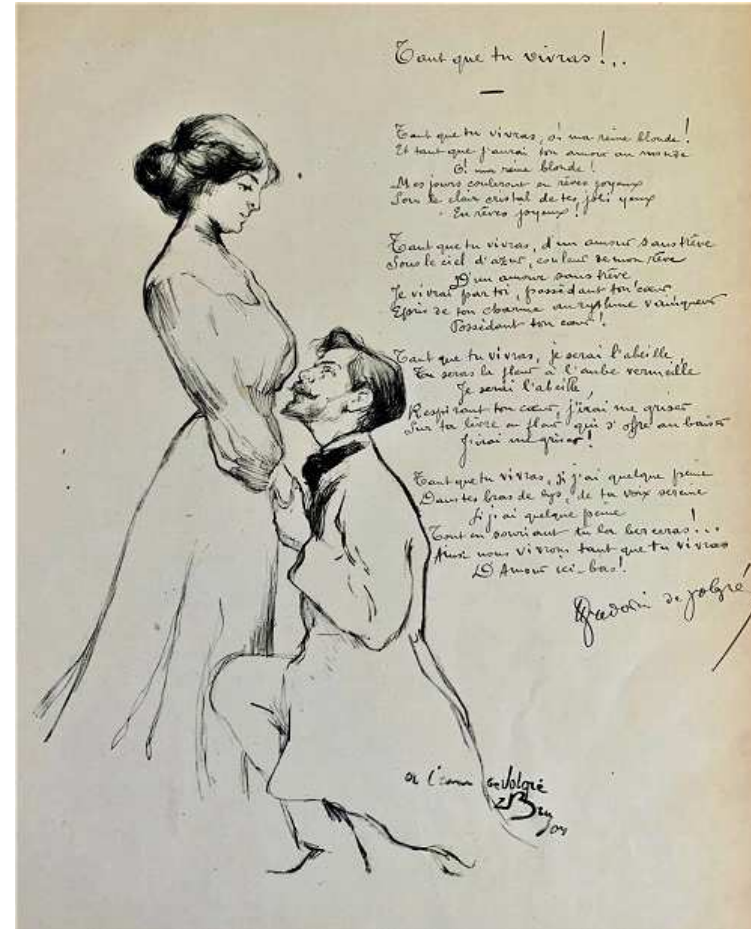 Tant que tu vivras !..
Tant que tu vivras, ô ma reine blonde !
Et tant que j'aurai ton amour au monde
O! ma reine blonde !
Mes jours couleront en rêves joyeux
Sous le clair cristal de tes joli yeux
En rêves joyeux !
Tant que tu vivras, d'un amour sans trêve
Sous le ciel d'azur, couleur de mon rêve
D'un amour sans trêve
Je vivrai par toi, possédant ton cœur
Epris de ton charme au rythme vainqueur
Possédant ton cœur !
Tant que tu vivras, je serai l'abeille,
Tu seras la fleur à l'aube vermeille
Je serai l'abeille
Respirant ton cœur, j'irai me griser
Sur ta lèvre en fleur qui s'ofre au baiser
J'irai me griser !
Tant que tu vivras, si j'ai quelque peine
Dans tes bras de lys, de ta voix sereine
Si j'ai quelque peine
Tout en souriant tu la berceras !...
Ainsi nous vivrons tant que tu vivras
D'Amour ici-bas !
de Jolgré
de Jolgré